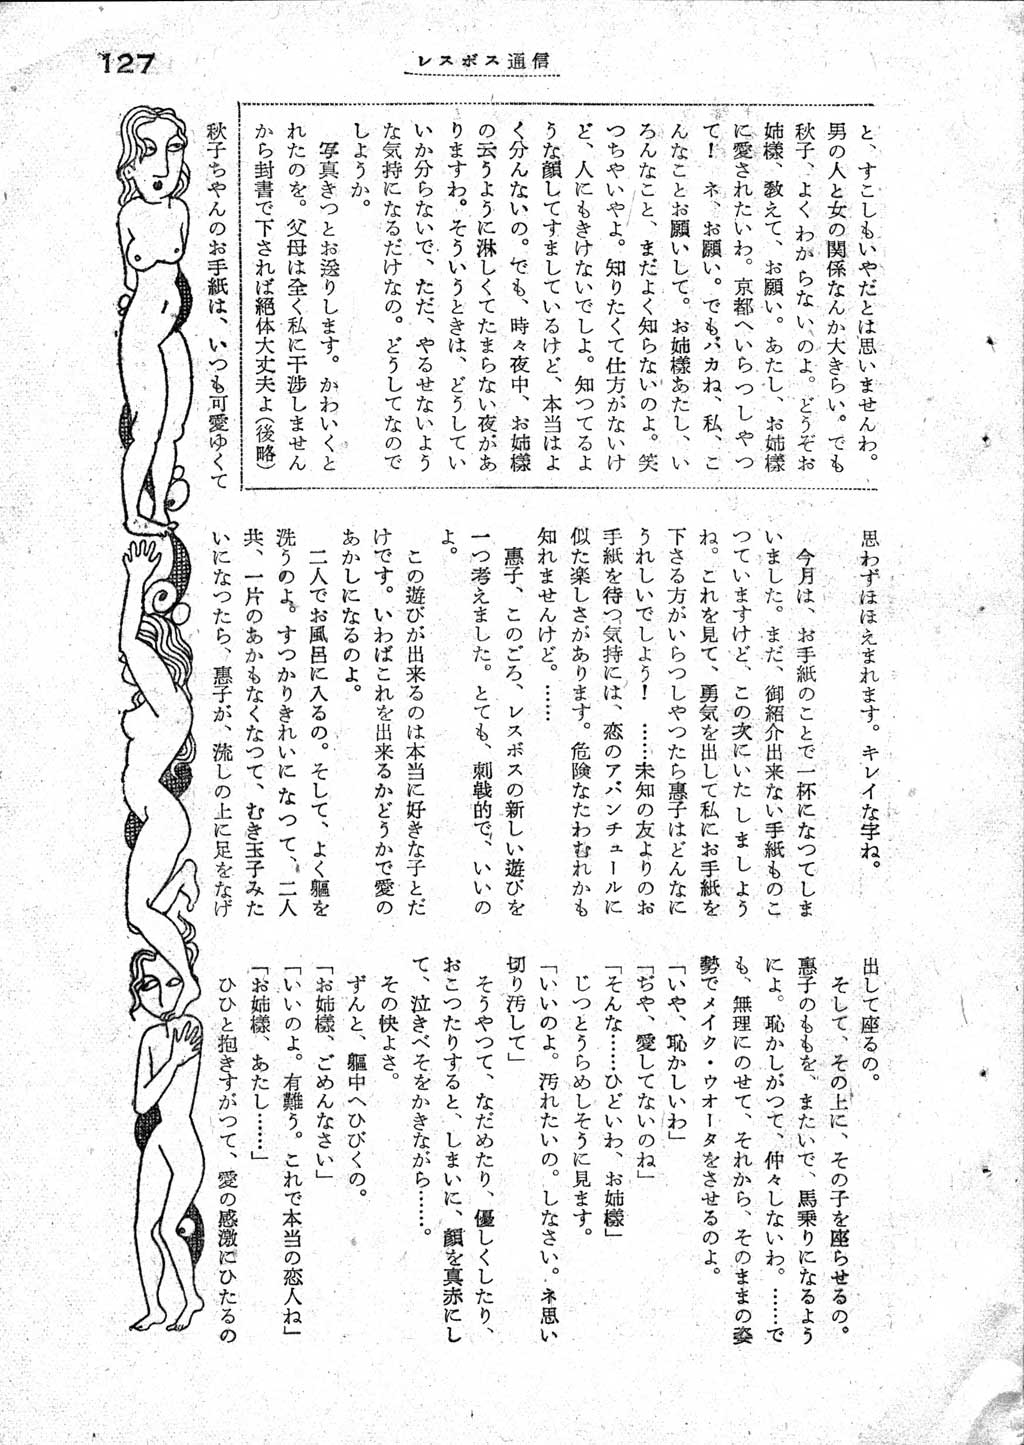 127
レスボス通信
と、すこしもいやだとは思いませんわ。
男の人と女の関係なんか大きらい。でも
秋子、よくわからないのよ。どうぞお
姉様、教えて、お願い。あたし、お姉様
に愛されたいわ。京都へいらつしやつ
て！　ネ、お願い。でもバカね、私、こ
んなことお願いして。お姉様あたし、い
ろんなこと、まだよく知らないのよ。笑
つちやいやよ。知りたくて仕方がないけ
ど、人にもきけないでしよ。知つてるよ
うな顔してすましているけど、本当はよ
く分んないの。でも、時々夜中、お姉様
の云うように淋しくてたまらない夜があ
りますわ。そういうときは、どうしてい
いか分らないで、ただ、やるせないよう
な気持になるだけなの。どうしてなので
しようか。
写真きつとお送りします。かわいくと
れたのを。父母は全く私に干渉しません
から封書で下されば絶体大丈夫よ（後略）
秋子ちやんのお手紙は、いつも可愛ゆくて
思わずほほえまれます。キレイな字ね。
今月は、お手紙のことで一杯になつてしま
いました。まだ、御紹介出来ない手紙ものこ
つていますけど、この次にいたしましよう
ね。これを見て、勇気を出して私にお手紙を
下さる方がいらつしやつたら惠子はどんなに
うれしいでしよう！　……未知の友よりのお
手紙を待つ気持には、恋のアバンチュールに
似た楽しさがあります。危険なたわむれかも
知れませんけど。……
惠子、このごろ、レスボスの新しい遊びを
一つ考えました。とても、刺戟的で、いいの
よ。
この遊びが出来るのは本当に好きな子とだ
けです。いわばこれを出来るかどうかで愛の
あかしになるのよ。
二人でお風呂に入るの。そして、よく軀を
洗うのよ。すつかりきれいになつて、二人
共、一片のあかもなくなつて、むき玉子みた
いになつたら、惠子が、流しの上に足をなげ
出して座るの。
そして、その上に、その子を座らせるの。
惠子のももを、またいで、馬乗りになるよう
によ。恥かしがつて、仲々しないわ。……で
も、無理にのせて、それから、そのままの姿
勢でメイク・ウオータをさせるのよ。
「いや、恥かしいわ」
「ぢや、愛してないのね」
「そんな……ひどいわ、お姉様」
じつとうらめしそうに見ます。
「いいのよ。汚れたいの。しなさい。ネ思い
切り汚して」
そうやつて、なだめたり、優しくしたり、
おこつたりすると、しまいに、顔を真赤にし
て、泣きべそをかきながら……。
その快よさ。
ずんと、軀中へひびくの。
「お姉様、ごめんなさい」
「いいのよ。有難う。これで本当の恋人ね」
「お姉様、あたし……」
ひひと抱きすがつて、愛の感激にひたるの